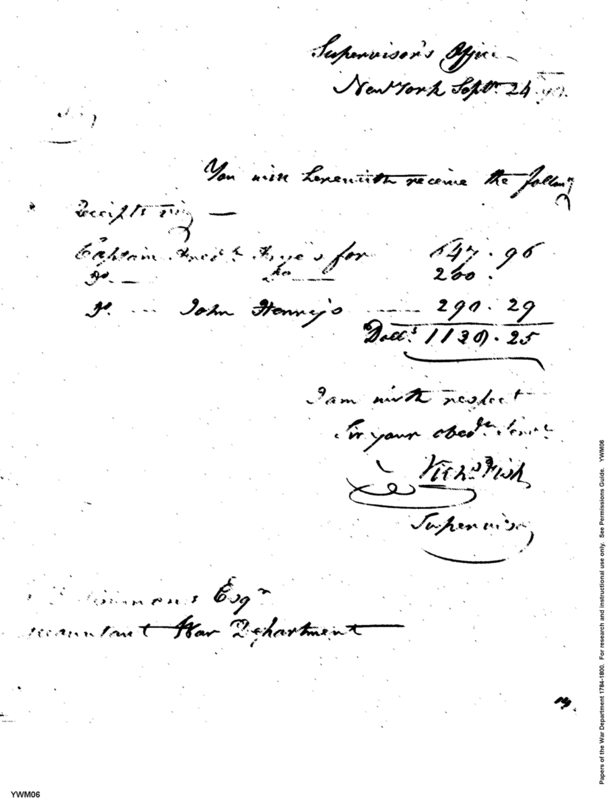 Supervisor's Office
New York Sept. 24
Sir
You will herewith receive the follow.g
Receipts viz —
Captain Fred.k Frye's for 647.96
Do. — Do — 200.
Do. — John Henry's — 291.29
Doll.s 1139.25
I am with respect
Sir your obed.t Serv.t
Nich.s Fish
Supervisor
Simmons Esq.r
Accountant War Department
YWM06
Papers of the War Department 1784-1800. For research and instructional use only. See Permissions Guide. YWM06